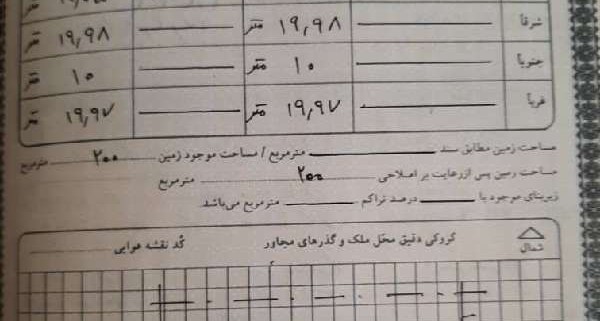 شرقاً ۱۹,۹۸ متر ۱۹,۹۸ متر
جنوباً ۱۰ متر ۱۰ متر
غرباً ۱۹,۹۷ متر ۱۹,۹۷ متر
مساحت زمین مطابق سند مترمربع / مساحت موجود زمین ۲۰۰ مترمربع
مساحت زمین پس ازرعایت بر اصلاحی ۲۰۰ مترمربع
زیربنای موجود با درصد تراکم مترمربع می‌باشد.
شمال کروکی دقیق محل ملک و گذرهای مجاور کد نقشه هوایی